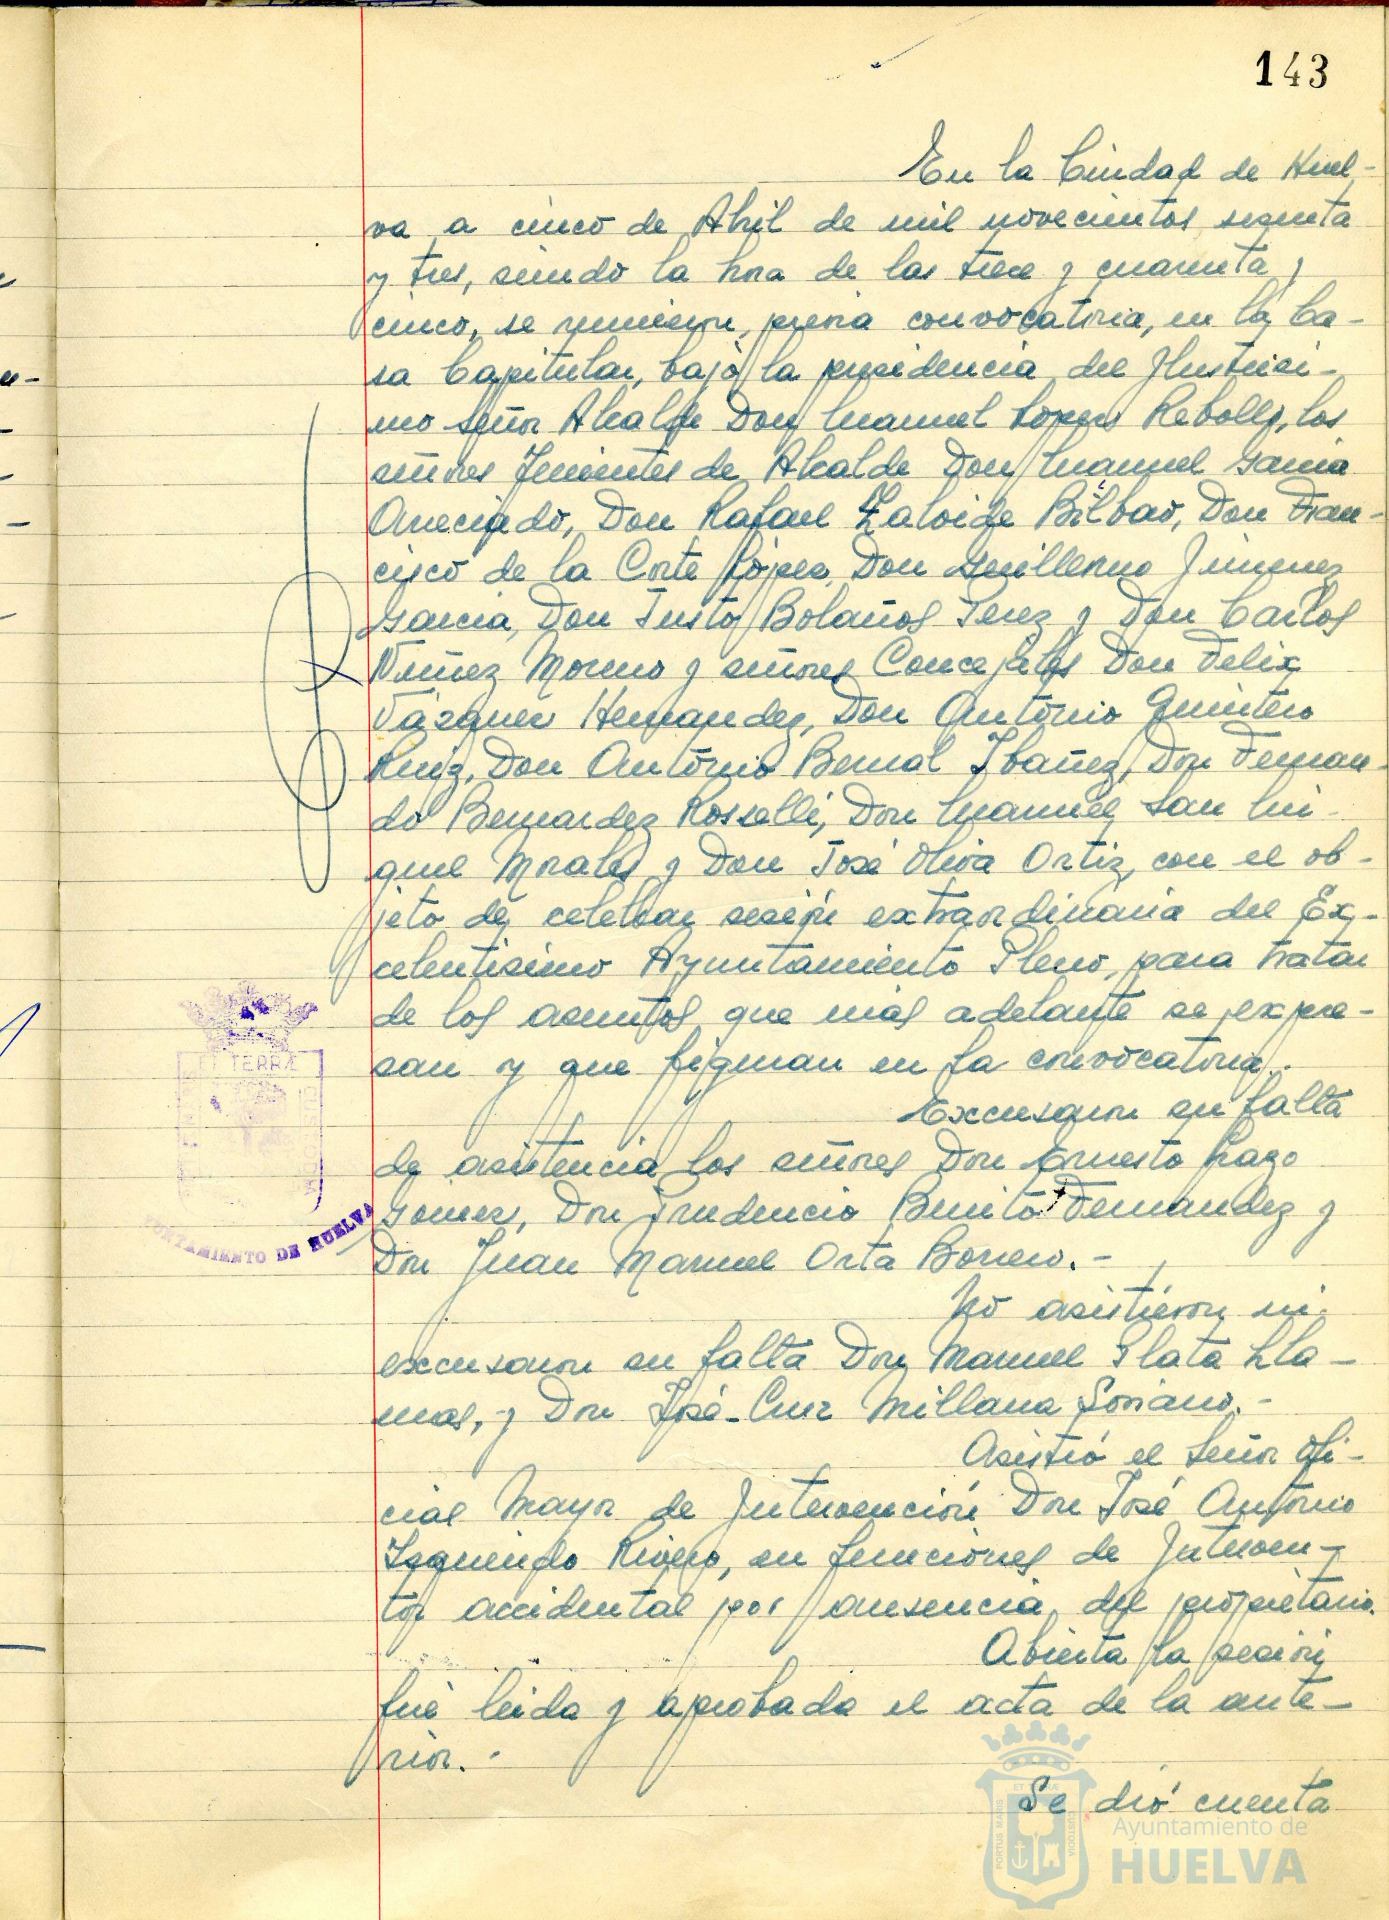 143
En la Ciudad de Huel-
va a cinco de Abril de mil novecientos sesenta
y tres, siendo la hora de las trece y cuarenta y
cinco, se reunieron, previa convocatoria, en la Ca-
sa Capitular, bajo la presidencia del Ilustrisi-
mo Señor Alcalde Don Manuel Lopez Rebollo, los
señores Tenientes de Alcalde Don Manuel Garcia
Areciado, Don Rafael Zaloide Bilbao, Don Fran-
cisco de la Corte López, Don Guillermo Jimenez
Garcia, Don Justo Bolaños Perez y Don Carlos
Nuñez Moreno y señores Concejales Don Felix
Vázquez Hernandez, Don Antonio Quintero
Ruiz, Don Antonio Bernal Ibañez, Don Fernan-
do Bernardez Rosselli, Don Manuel San Mi-
guel Morales y Don José Oliva Ortiz, con el ob-
jeto de celebrar sesión extraordinaria del Ex-
celentisimo Ayuntamiento Pleno, para tratar
de los asuntos que más adelante se expre-
san y que figuran en la convocatoria.-
Excusaron su falta
de asistencia los señores Don Ernesto Lazo
Gomez, Don Prudencio Benito Fernandez y
Don Juan Manuel Orta Borrero.-
No asistieron ni
excusaron su falta Don Manuel Plata Lla-
mas, y Don José-Cruz Millana Soriano.-
Asistió el Señor Ofi-
cial Mayor de Intervención Don José Antonio
Izquierdo Rivero, en funciones de Interven-
tor accidental por ausencia del propietario.
Abierta la sesión
fué leida y aprobada el acta de la ante-
rior.-
Se dió cuenta
ET TERRÆ
CUSTODIA
AYUNTAMIENTO DE HUELVA
PORTUS MARIS
ET TERRÆ
CUSTODIA
Ayuntamiento de
HUELVA